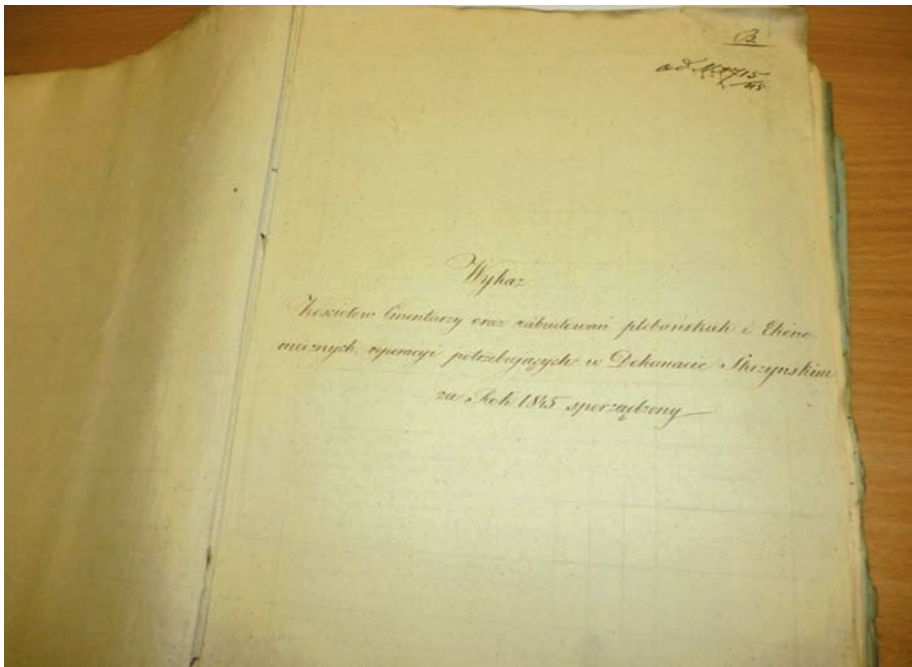 B.
ad
Wykaz
Kosciołow Cmentarzy oraz zabudowań plebańskich i Ekono
micznych, reperacyi potrzebujących w Dekanacie Skrzynskim
za Rok 1845 sporządzony